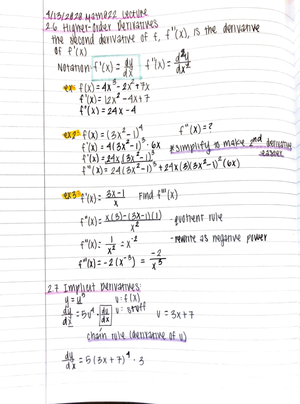 4/13/2020 Math22 Lecture
2.6 Higher-Order Derivatives
the second derivative of f, f''(x), is the derivative
of f'(x)
Notation f'(x) = dy/dx f''(x) = d²y/dx²
ex f(x) = 4x³ - 2x² + 7x
f'(x) = 12x² - 4x + 7
f''(x) = 24x - 4
ex2 f(x) = (3x² - 1)⁴ f''(x) = ?
f'(x) = 4(3x² - 1)³ · 6x *simplify to make 2nd derivative
easier
f'(x) = 24x(3x² - 1)³
f''(x) = 24(3x² - 1)³ + 24x(3)(3x² - 1)²(6x)
ex3 f'(x) = 3x-1/x Find f'''(x)
f''(x) = x(3)-(3x-1)(1)/x² - quotient rule
f''(x) = 1/x² = x⁻² - rewrite as negative power
f'''(x) = -2(x⁻³) = -2/x³
2.7 Implicit Derivatives:
y = u⁵ u = f(x)
dy/dx = 5u⁴ · du/dx u = stuff u = 3x + 7
chain rule (derivative of u)
dy/dx = 5(3x + 7)⁴ · 3